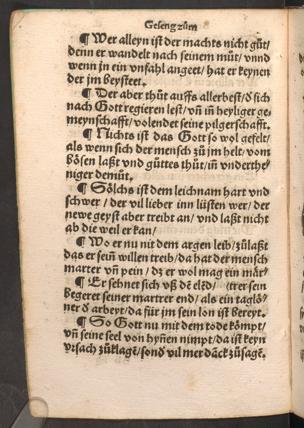 Geseng zům
¶ Wer alleyn ist der machts nicht gůt/
denn er wandelt nach seinem můt/ vnnd
wenn jn ein vnfahl angeet/ hat er keynen
der jm beysteet.
¶ Der aber thůt auffs allerbest/ d̕ sich
nach Gott regieren lest/ vn̄ in heyliger ge⸗
meynschafft/ volendet seine pilgerschafft.
¶ Nichts ist das Gott so wol gefelt/
als wenn sich der mensch zů jm helt/ vom
bösen laßt vnd gůttes thůt/ in̄ vnderthe⸗
niger demůt.
¶ Sölchs ist dem leichnam hart vnd
schwer / der vil lieber inn lüsten wer/ der
newe geyst aber treibt an/ vnd laßt nicht
ab die weil er kan/
¶ Wo er nu nit dem argen leib/ zůlaßt
das er sein̄ willen treib/ da hat der mensch
marter vn̄ pein / dz er wol mag ein mär⸗
¶ Er sehnet sich vß dē elēd/ (trer sein
begeret seiner martrer end/ als ein taglö⸗
ner d̕ arbeyt/ da für jm sein lon ist bereyt.
¶ So Gott nu mit dem tode kömpt/
vn̄ seine seel von hyn̄en nimpt/ da ist keyn
vrsach zůklagē/ sond̕ vil mer dāck zůsagē.